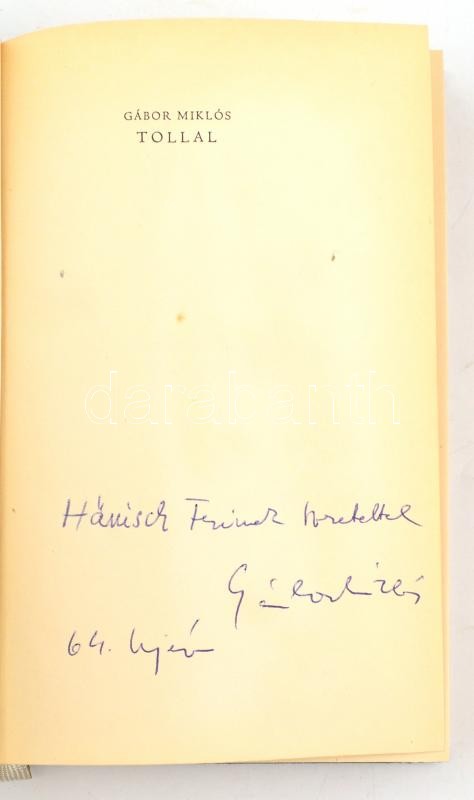 GÁBOR MIKLÓS
TOLLAL
darabanth
Hänisch Ferinek szeretettel
Gábor Miklós
64. Újév